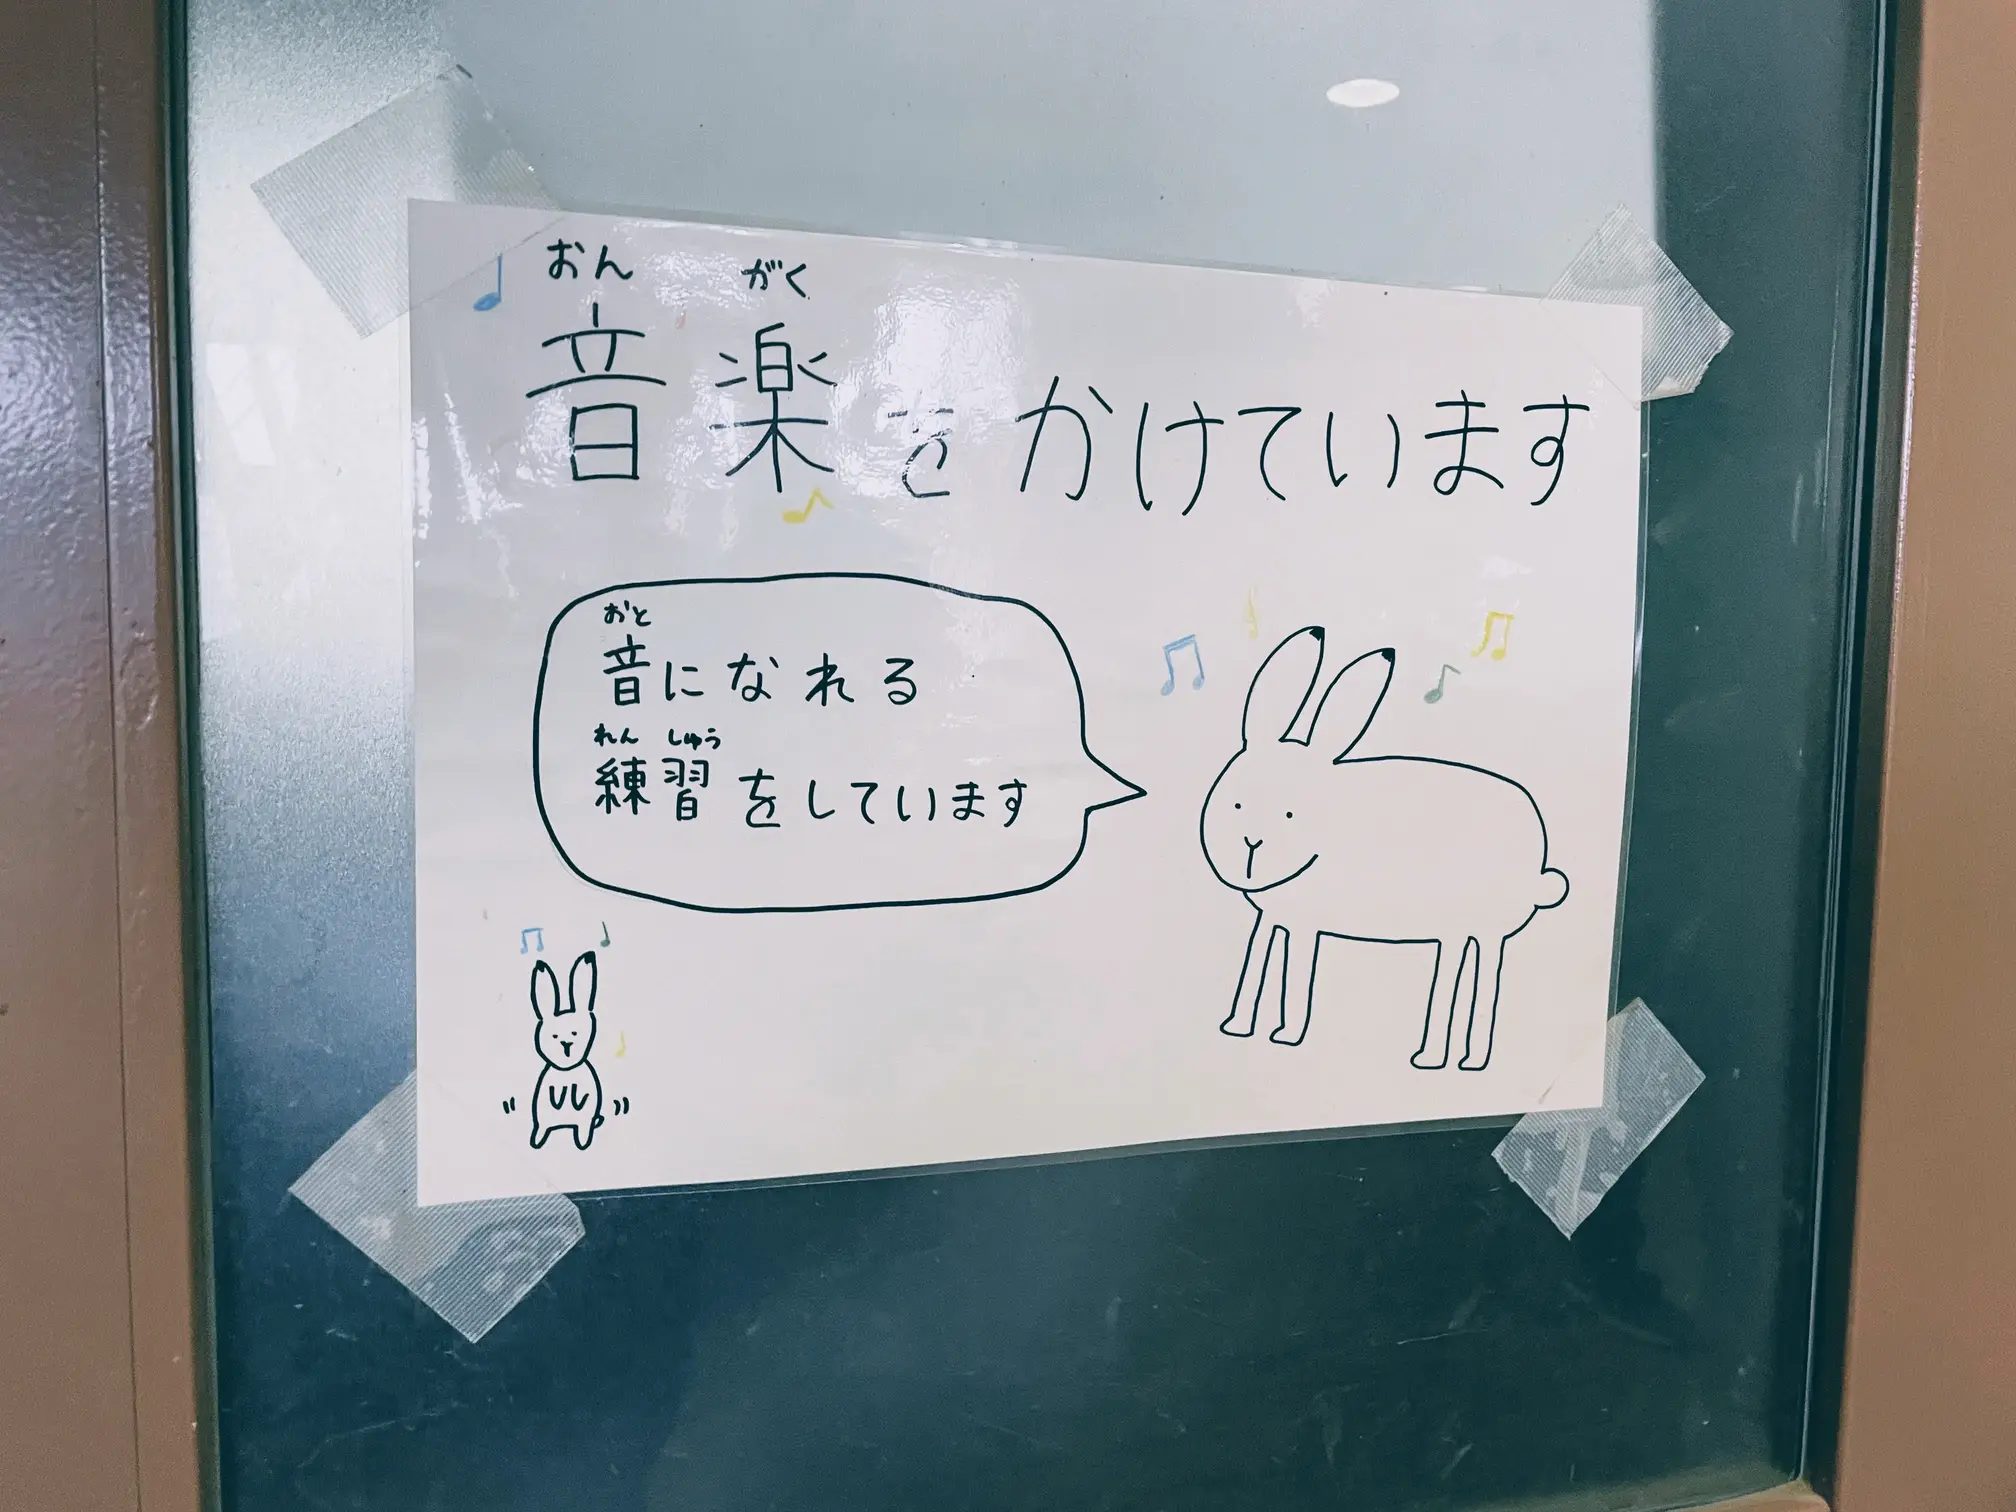 おん がく
音楽をかけています
おと
音になれる
れん しゅう
練習をしています